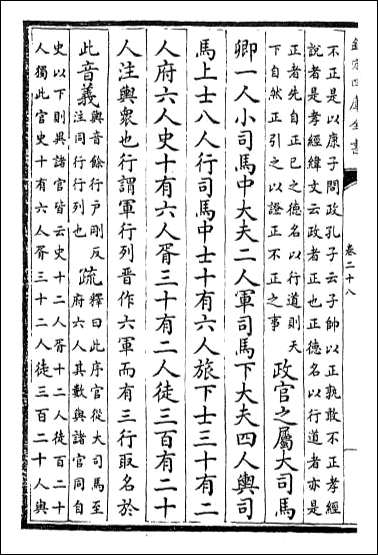 欽定四庫全書
卷二十八
不正是以康子問政孔子云子帥以正孰敢不正孝經
說者是孝經緯文云政者正也正德名以行道者亦是
正者先自正已之德名以行道則天
下自然正引之以證正不正之事
政官之屬大司馬
卿一人小司馬中大夫二人軍司馬下大夫四人輿司
馬上士八人行司馬中士十有六人旅下士三十有二
人府六人史十有六人胥三十有二人徒三百有二十
人注輿衆也行謂軍行列晉作六軍而有三行取名於
此音義
輿音餘行户剛反
注同行行列也
疏
釋曰此序官從大司馬至
府六人其數與諸官同自
史以下則異諸官皆云史十二人胥十二人徒百二十
人獨此官史十有六人胥三十二人徒三百二十人與